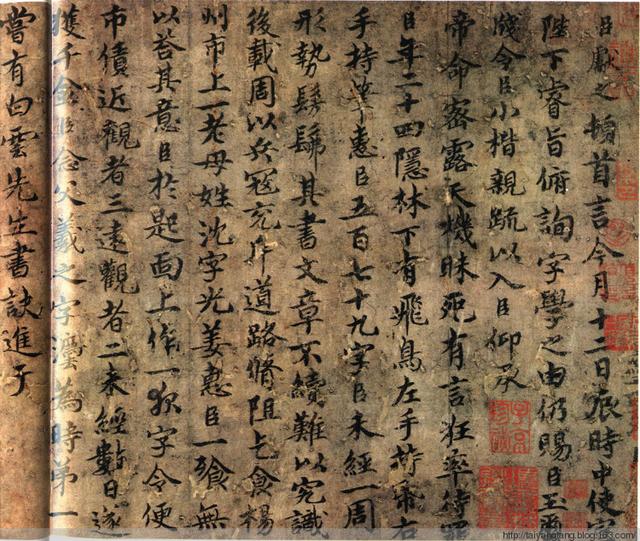 臣獻之頓首言今月十二日辰時中使宣
陛下睿旨俯詢字學之由仍賜臣玉爵
令臣小楷親疏以入臣仰承
帝命密露天機昧死有言狂率待罪
臣年二十四隱林下有飛鳥左手持帋右
手持筆惠臣五百七十九字臣未經一周
形勢髣髴其書文章不續難以究識
後載周以兵寇充斥道路脩阻乞食揚
州市上一老母姓沈字光姜惠臣一飡無
以荅其意臣於匙面上作一夜字令便
市債近觀者三遠觀者二未經數日遂
獲千金臣念父羲之字灋為時第一
嘗有白雲先生書訣進于